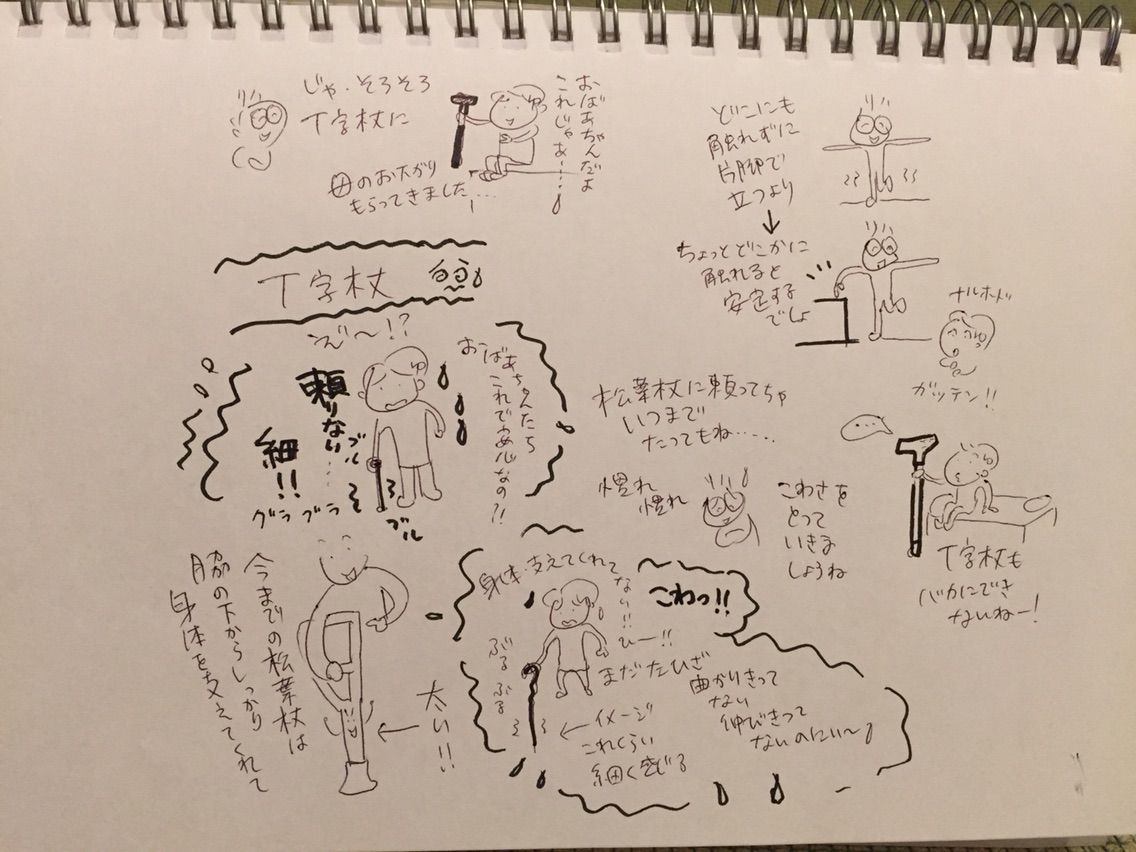 じゃ・そろそろ
T字杖に
おばあちゃんだよ
これじゃあ……
母のお下がり
もらってきました…
T字杖
え゛〜!?
おばあちゃんたち
これで安心なの?!
頼りない…
細!!
ブル
グラ グラ
ブル
今までの松葉杖は
脇の下からしっかり
身体を支えてくれて
太い!!
身体支えてくれて
ない!!
ひー!!
こわっ!!
ぶる
ぶる
まだだひざ
曲がりきって
ない
伸びきって
ないのにぃ〜
イメージ
これくらい
細く感じる
どこにも
触れずに
片脚で
立つより
ちょっとどこかに
触れると
安定する
でしょ
ナルホド
ガッテン!!
松葉杖に頼ってちゃ
いつまで
たってもね……
慣れ
慣れ
こわさを
とって
いきま
しょうね
…
T字杖も
バカにでき
ないねー!